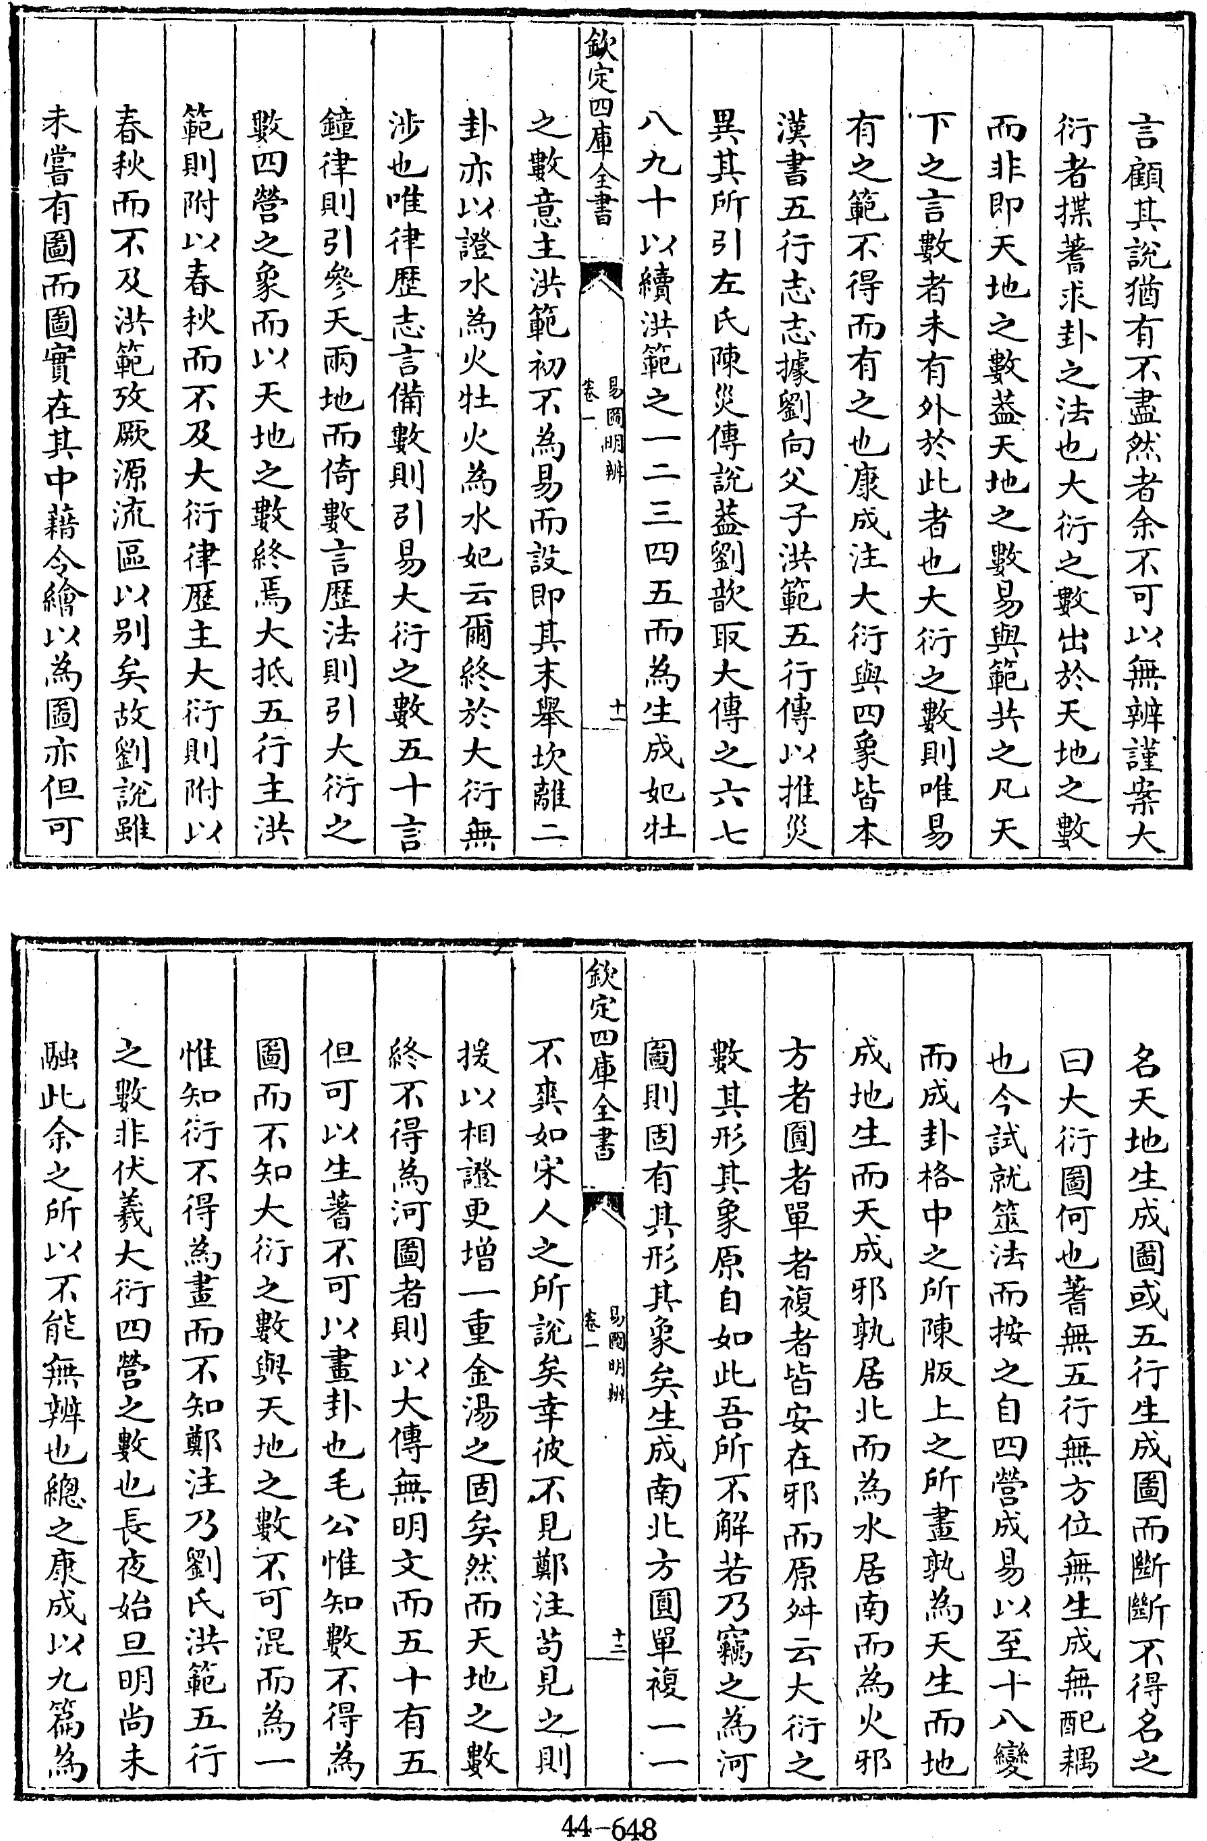 言顧其說猶有不盡然者余不可以無辨謹案大
衍者揲蓍求卦之法也大衍之數出於天地之數
而非即天地之數葢天地之數易與範共之凡天
下之言數者未有外於此者也大衍之數則唯易
有之範不得而有之也康成注大衍與四象皆本
漢書五行志志據劉向父子洪範五行傳以推災
異其所引左氏陳災傳說葢劉歆取大傳之六七
八九十以續洪範之一二三四五而為生成妃牡
欽定四庫全書
易圖明辨
卷一
十一
之數意主洪範初不為易而設即其末舉坎離二
卦亦以證水為火牡火為水妃云爾終於大衍無
涉也唯律歷志言備數則引易大衍之數五十言
鐘律則引參天兩地而倚數言歷法則引大衍之
數四營之象而以天地之數終焉大抵五行主洪
範則附以春秋而不及大衍律歷主大衍則附以
春秋而不及洪範攷厥源流區以别矣故劉說雖
未嘗有圖而圖實在其中藉令繪以為圖亦但可
名天地生成圖或五行生成圖而斷斷不得名之
曰大衍圖何也蓍無五行無方位無生成無配耦
也今試就筮法而按之自四營成易以至十八變
而成卦格中之所陳版上之所畫孰為天生而地
成地生而天成邪孰居北而為水居南而為火邪
方者圓者單者複者皆安在邪而原舛云大衍之
數其形其象原自如此吾所不解若乃竊之為河
圖則固有其形其象矣生成南北方圓單複一一
欽定四庫全書
易圖明辨
卷一
十二
不爽如宋人之所說矣幸彼不見鄭注苟見之則
援以相證更增一重金湯之固矣然而天地之數
終不得為河圖者則以大傳無明文而五十有五
但可以生蓍不可以畫卦也毛公惟知數不得為
圖而不知大衍之數與天地之數不可混而為一
惟知衍不得為畫而不知鄭注乃劉氏洪範五行
之數非伏羲大衍四營之數也長夜始旦明尚未
融此余之所以不能無辨也總之康成以九篇為
44-648